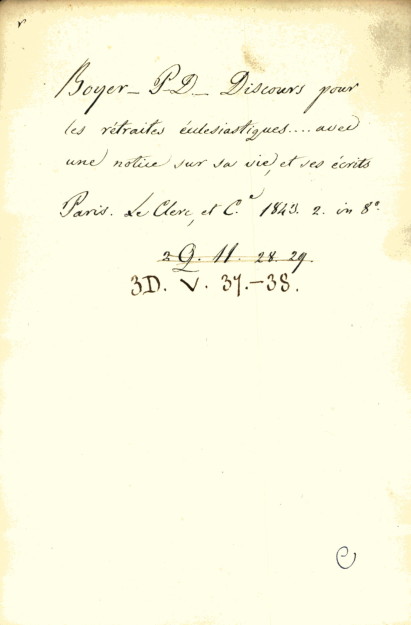 Boyer_ P_D_ Discours pour
les rétraites éculesiastiques.... avec
une notice sur sa vie, et ses écrits
Paris. Le Clerc, et C.e 1843. 2. in 8°.
2 Q. 11. 28. 29.
3D. V. 37.-38.
C